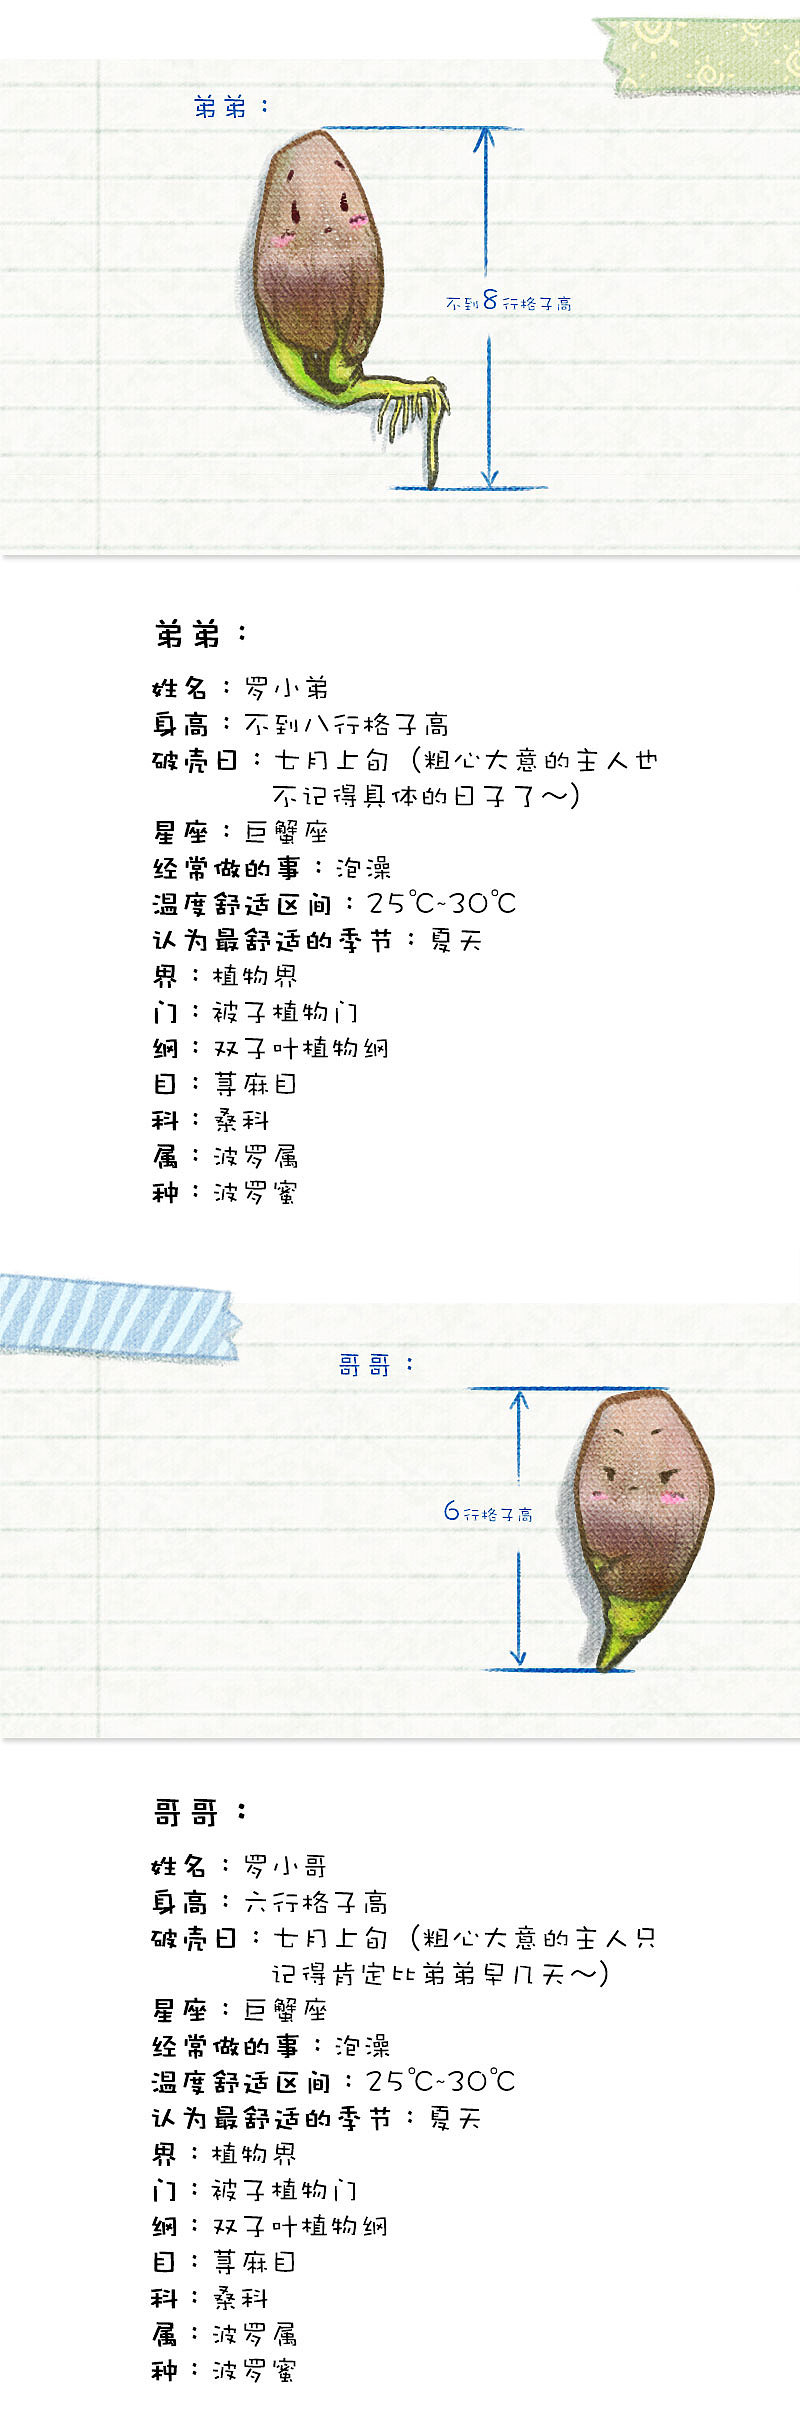 弟弟：
不到8行格子高
弟弟：
姓名：罗小弟
身高：不到八行格子高
破壳日：七月上旬（粗心大意的主人也
不记得具体的日子了～）
星座：巨蟹座
经常做的事：泡澡
温度舒适区间：25℃~30℃
认为最舒适的季节：夏天
界：植物界
门：被子植物门
纲：双子叶植物纲
目：荨麻目
科：桑科
属：波罗属
种：波罗蜜
哥哥：
6行格子高
哥哥：
姓名：罗小哥
身高：六行格子高
破壳日：七月上旬（粗心大意的主人只
记得肯定比弟弟早几天～）
星座：巨蟹座
经常做的事：泡澡
温度舒适区间：25℃~30℃
认为最舒适的季节：夏天
界：植物界
门：被子植物门
纲：双子叶植物纲
目：荨麻目
科：桑科
属：波罗属
种：波罗蜜